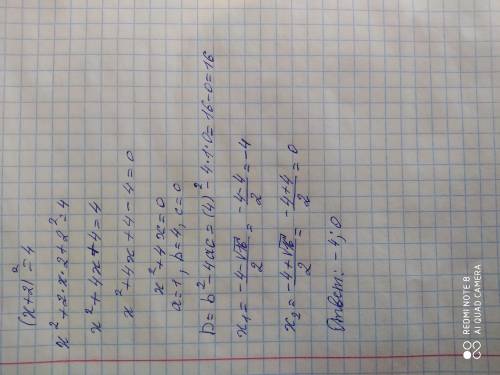 (x+2)²=4
x²+2·x·2+2²=4
x²+4x+4=4
x²+4x+4-4=0
x²+4x=0
a=1, b=4, c=0
D=b²-4ac=(4)²-4·1·0=16-0=16
x₁=(-4-√16)/2=(-4-4)/2=-4
x₂=(-4+√16)/2=(-4+4)/2=0
Ответ: -4; 0
REDMI NOTE 8
AI QUAD CAMERA